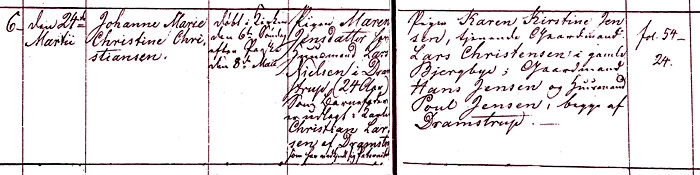 6-
den 24de
Martii
Johanne Marie
Christine Chri-
stiansen.
Døbt i Kirken
den 6te Søndag
efter Paaske
den 8de Mai
Pigen Maren
Jensdatter hos
Huusmand Lars
Nielsen i Dram-
strup (24 Aar)
Som Barnefader
er udlagt: Lars
Christian Lar-
sen af Dramst:
som har
Pige Karen Kirstine Jen-
sen, tjenende Gaardmand
Lars Christensen i gamle
Bjergbye; Gaardmand
Hans Jensen og Huusmand
Poul Jensen, begge af
Dramstrup. —
fol. 54-
24.